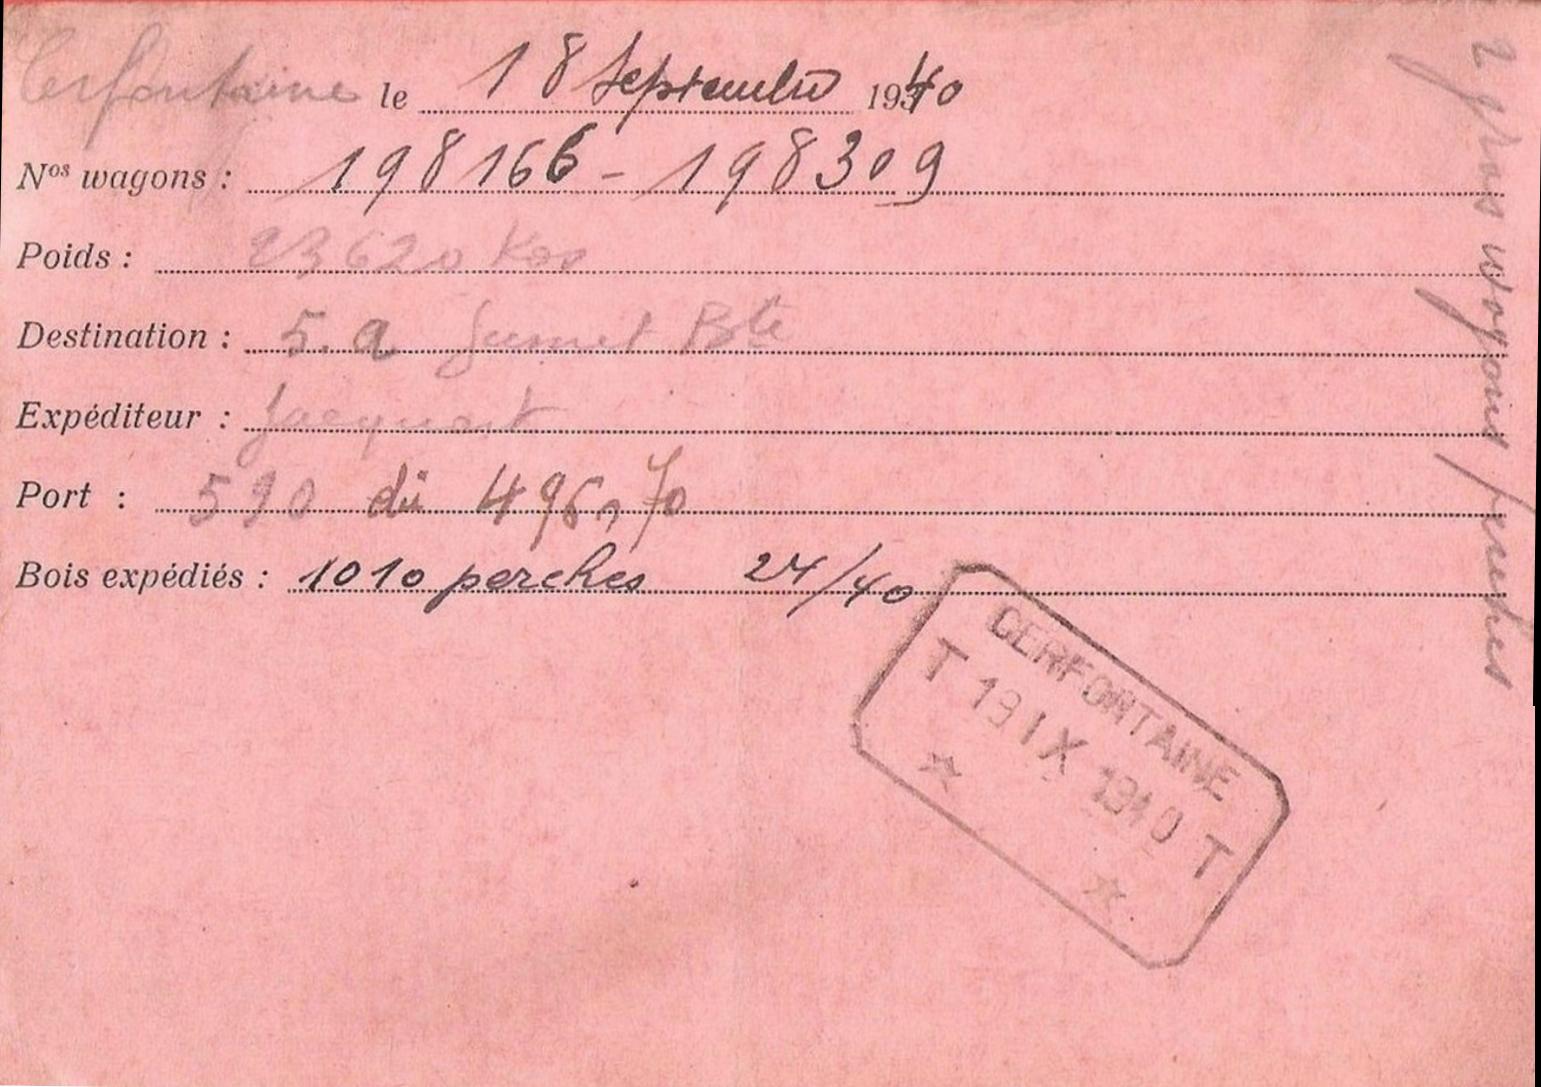 Cerfontaine le 18 Septembre 1940
Nos wagons : 198166 - 198309
Poids : 23620 Kos
Destination : S.A Jumet Bte
Expéditeur : Jacquart
Port : 590 dû 496,70
Bois expédiés : 1010 perches 24/40
CERFONTAINE
T 19 IX 1940 T
2 gros wagons perches